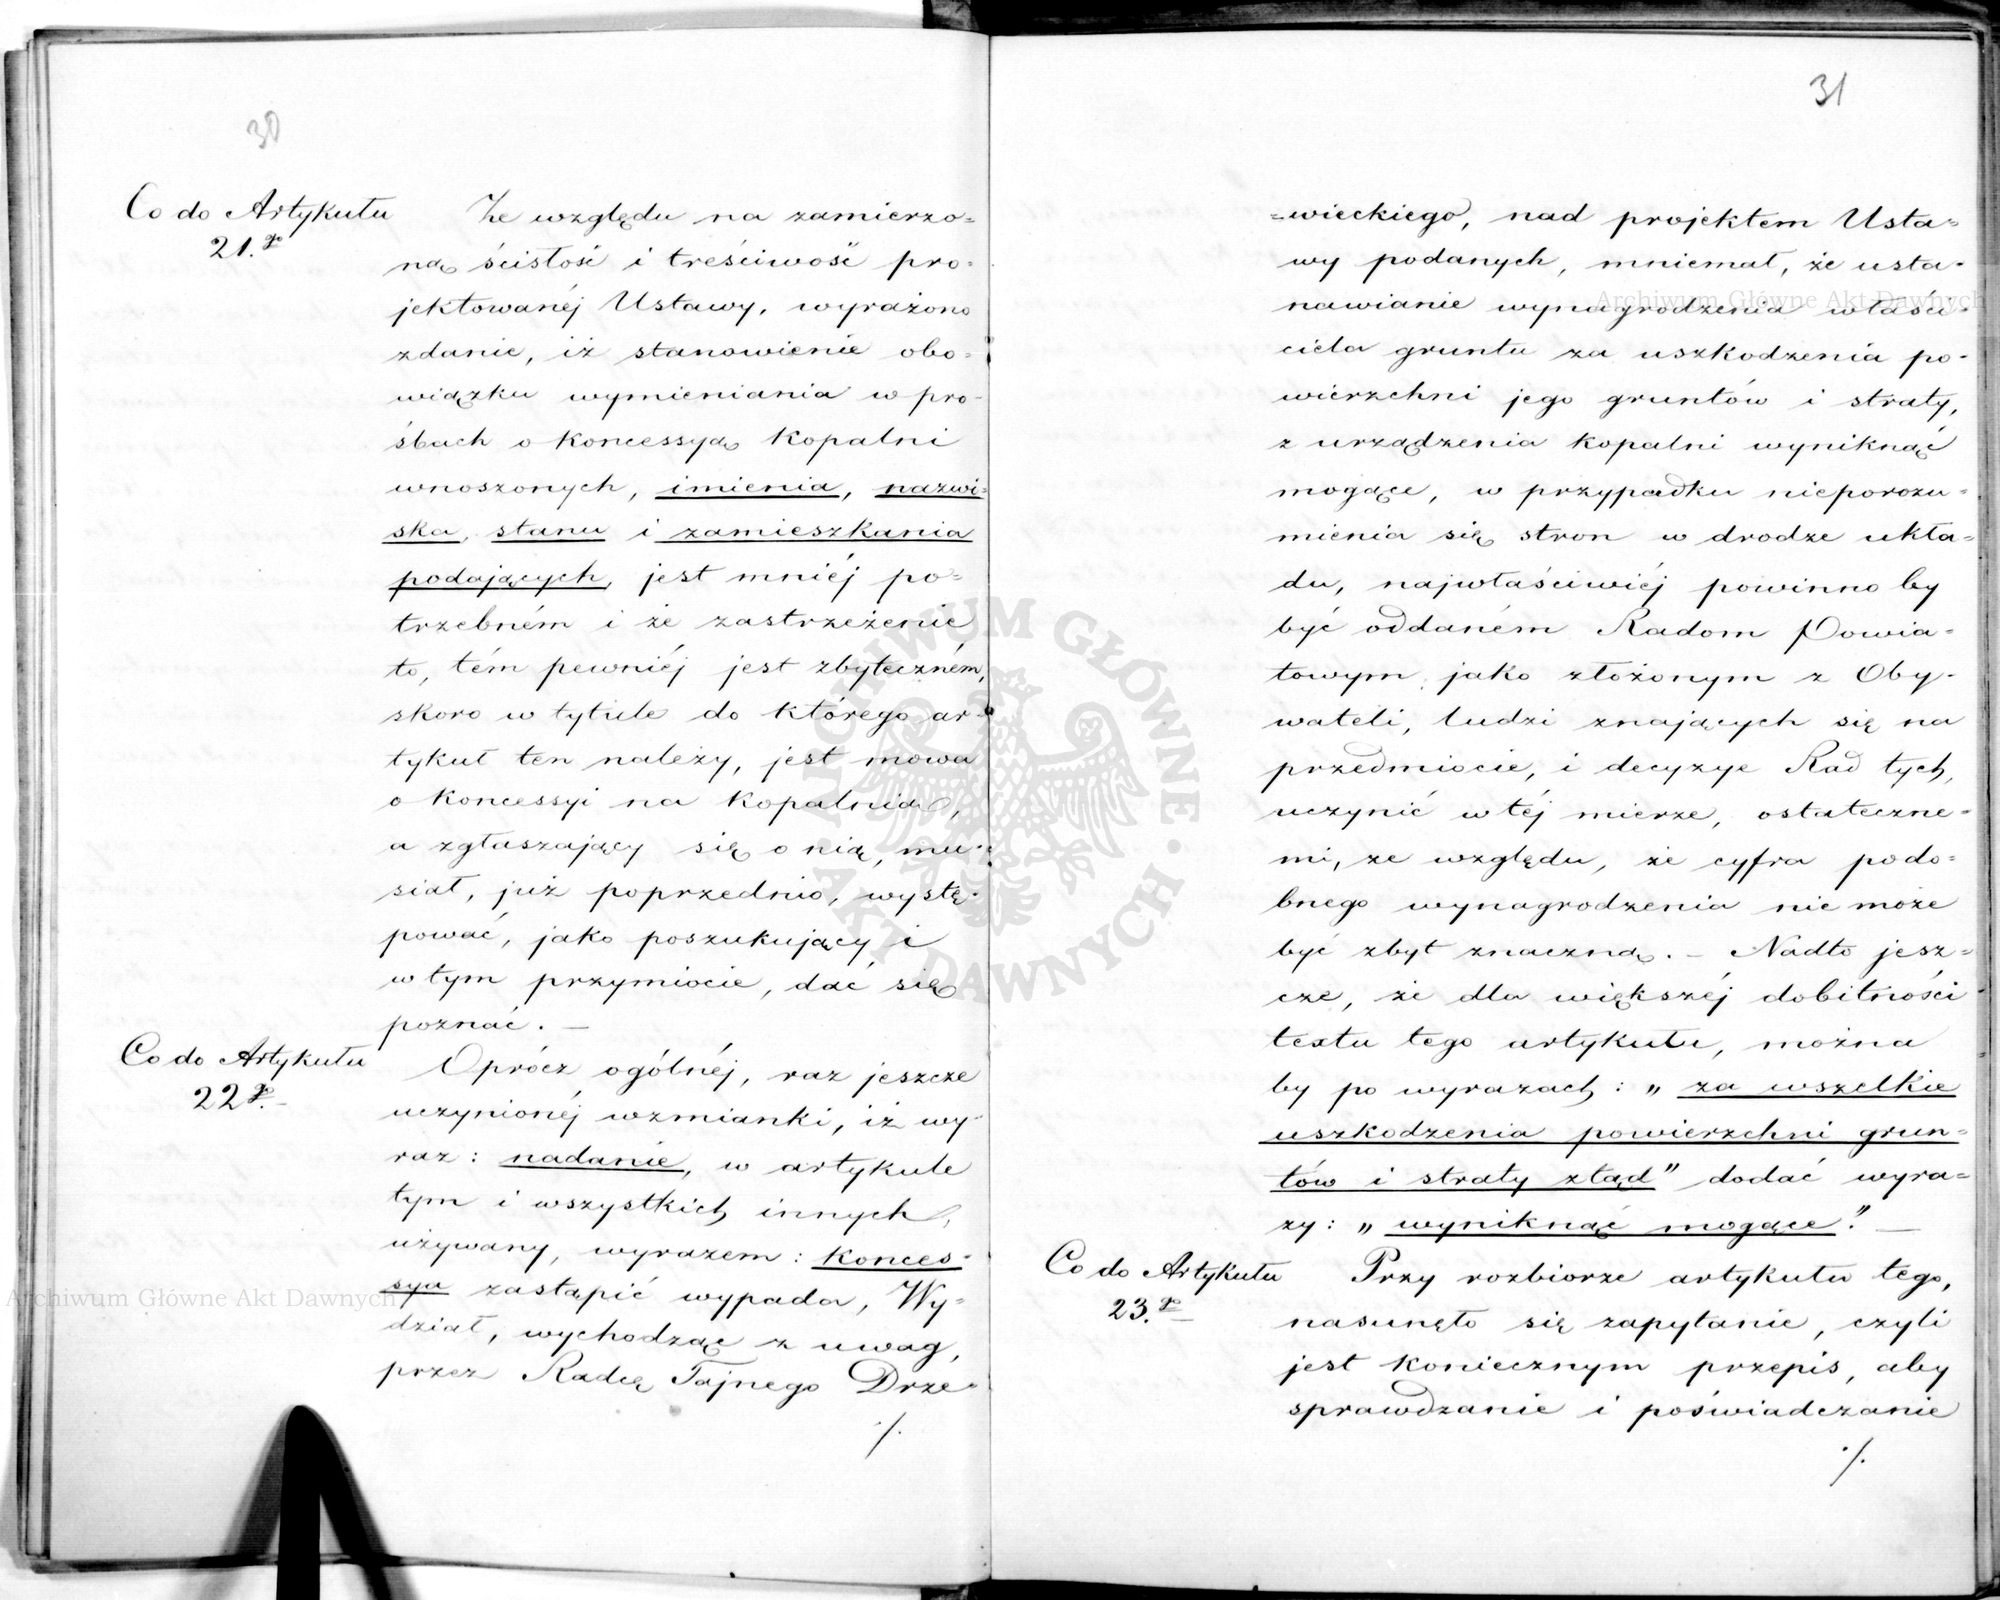 30
Co do Artykułu
21.go
Ze względu na zamierzo-
ną ścisłość i treściwość pro-
jektowanéj Ustawy, wyrażono
zdanie, iż stanowienie obo-
wiązku wymieniania w pro-
śbach o koncessyą kopalni
wnoszonych, imienia, nazwi-
ska, stanu i zamieszkania
podających, jest mniéj po-
trzebném i że zastrzeżenie
to, tém pewniéj jest zbyteczném,
skoro w tytule do którego ar-
tykuł ten należy, jest mowa
o koncessyi na kopalnią,
a zgłaszający się o nią, mu-
siał, już poprzednio, wystę-
pować, jako poszukujący i
w tym przymiocie, dać się
poznać. –
Co do Artykułu
22go. –
Oprócz ogólnéj, raz jeszcze
uczynionéj wzmianki, iż wy-
raz: nadanie, w artykule
tym i wszystkich innych,
używany, wyrazem: konces-
sya zastąpić wypada, Wy-
dział, wychodząc z uwag,
przez Radcę Tajnego Drze-
./.
31
-wieckiego, nad projektem Usta-
wy podanych, mniemał, że usta-
nawianie wynagrodzenia właści-
ciela gruntu za uszkodzenia po-
wierzchni jego gruntów i straty,
z urządzenia kopalni wyniknąć
mogące, w przypadku nieporozu-
mienia się stron w drodze ukła-
du, najwłaściwiéj powinno by
być oddaném Radom Powia-
towym, jako złożonym z Oby-
wateli, ludzi znających się na
przedmiocie, i decyzye Rad tych,
uczynić w téj mierze, ostateczne-
mi, ze względu, że cyfra podo-
bnego wynagrodzenia nie może
być zbyt znaczną. – Nadto jesz-
cze, że dla większéj dobitności
textu tego artykułu, można
by po wyrazach: „za wszelkie
uszkodzenia powierzchni grun-
tów i straty ztąd" dodać wyra-
zy: „wyniknąć mogące". –
Co do Artykułu
23.go –
Przy rozbiorze artykułu tego,
nasunęło się zapytanie, czyli
jest koniecznym przepis, aby
sprawdzanie i poświadczanie
./.
Archiwum Główne Akt Dawnych
Archiwum Główne Akt Dawnych
ARCHIWUM GŁÓWNE • AKT DAWNYCH •